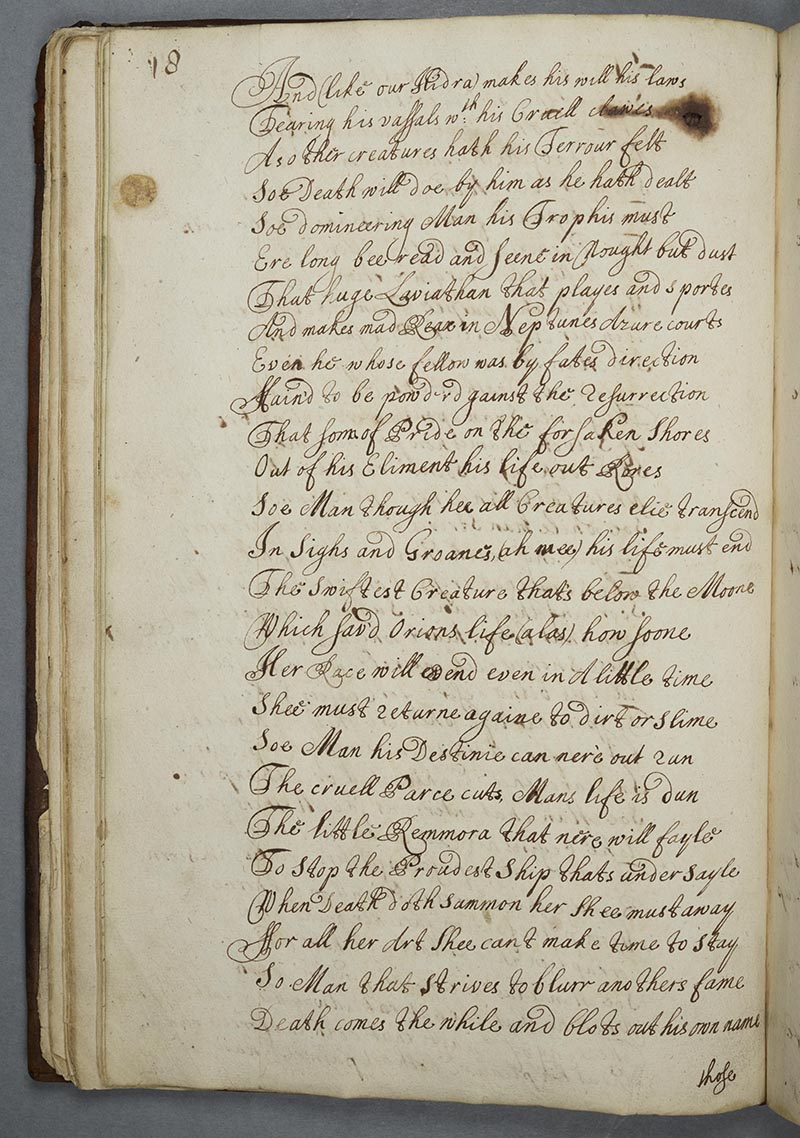 18
And (like our Hidra) makes his will his laws
Tearing his vassals wth. his Cruell clawes
As other creatures hath his Terrour felt
Soe Death will doe by him as he hath dealt
Soe domineering Man his Trophis must
Ere long bee read and seene in Nought but dust
That huge Laviathan that playes and sportes
And makes mad Reax in Neptunes Azure courts
Even he whose fellow was by fates direction
Slaind to be powderd gainst the resurrection
That son of Pride on the forsaken shores
Out of his Eliment his life out Rores
Soe Man though hee all Creatures elce transcend
In Sighs and Groanes, (ah mee) his life must end
The Swiftest Creature thats below the Moone
Which savd Orions life (alas) how soone
Her Race will end even in A little time
Shee must returne againe to dirt or slime
Soe Man his Destinie can nere out run
The cruell Parce cuts, Mans life is dun
The little Remmora that nere will fayle
To stop the Proudest Ship thats under sayle
When Death doth summon her shee must away
For all her Art shee can't make time to stay
So Man that strives to blurr anothers fame
Death comes the while and blots out his own name
those